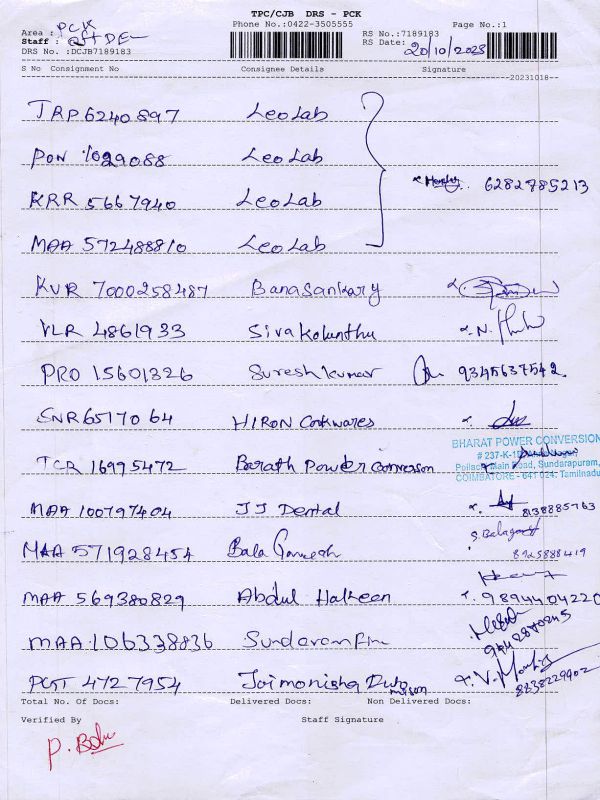 TPC/CJB DRS - PCK
Phone No.:0422-3505555 Page No.:1
Area : PCK
Staff :
DRS No. :DCJB7189183
RS No.:7189183
RS Date: 20/10/2023
S No Consignment No Consignee Details Signature
20231018
TRP 6240897 Leo Lab
PON 1029088 Leo Lab
KRR 5667940 Leo Lab 6282785213
MAA 572488810 Leo Lab
KVR 7000258487 Banasankary
VLR 4861933 Sivakolunthu
PRO 15601326 Sureshkumar 9345637542
ENR 6517064 HIRON Cookwares
BHARAT POWER CONVERSION
TCR 16995472 Barath Power Converson
Pollachi Main Road, Sundarapuram,
COIMBATORE - 641 024. Tamilnadu
MAA 100797404 JJ Dental 8138885763
MAA 571928454 Bala Ganesh S. Balaganesh
8925888419
MAA 569380829 Abdul Hakeen 9894404220
MAA 106338836 Sundaram Fin 9942870245
PGT 4727954 Jaimonisha 8838229902
Total No. Of Docs: Delivered Docs: Non Delivered Docs:
Verified By Staff Signature